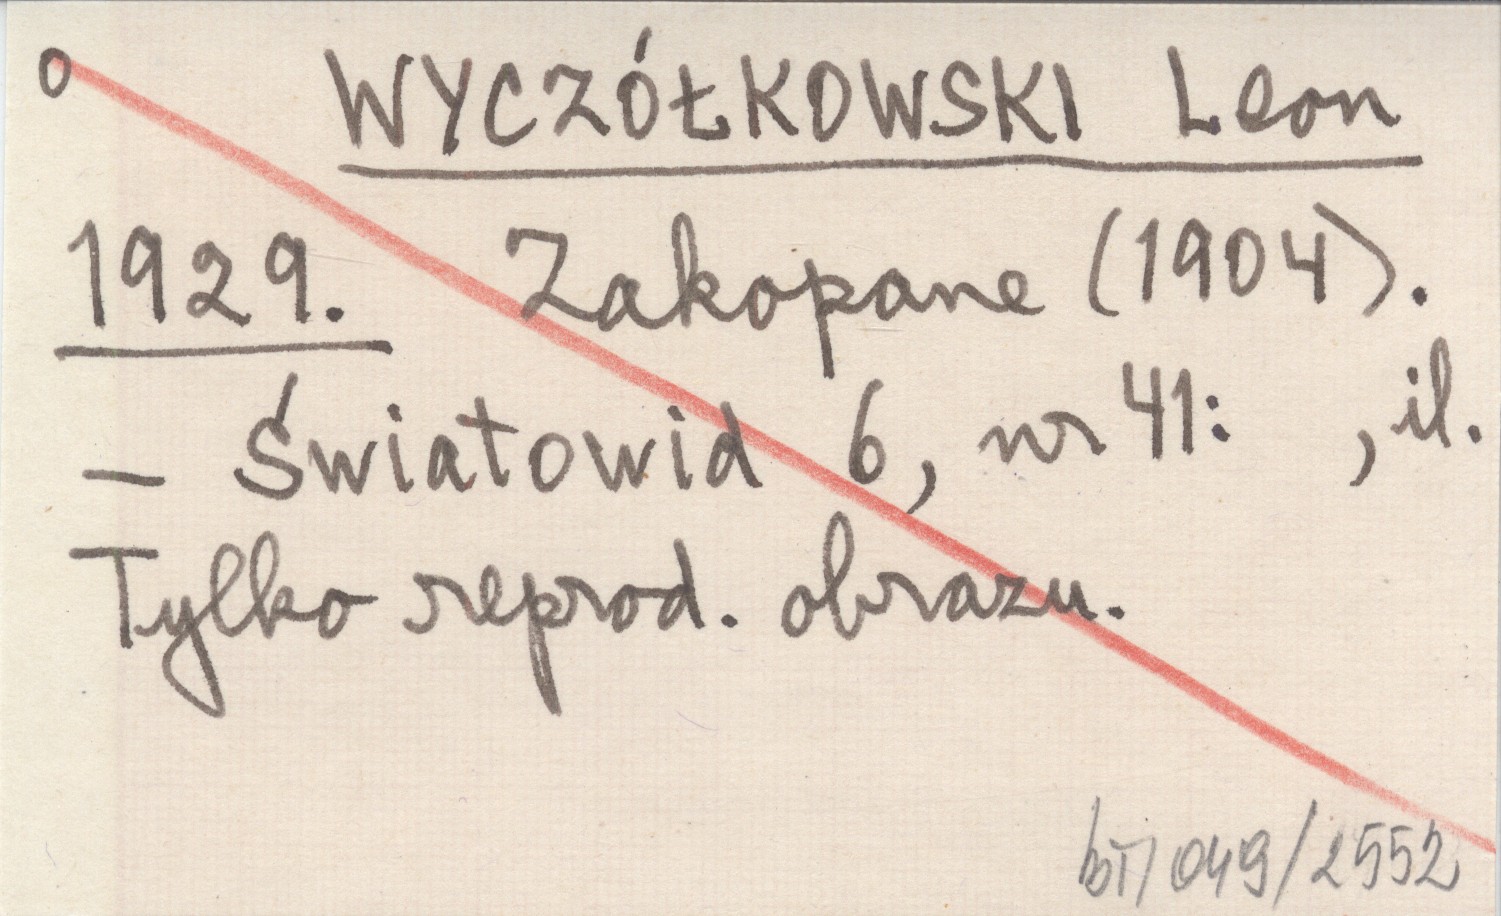 o WYCZÓŁKOWSKI Leon
1929. Zakopane (1904).
— Światowid 6, nr 41: , il.
Tylko reprod. obrazu.
bT/049/2552